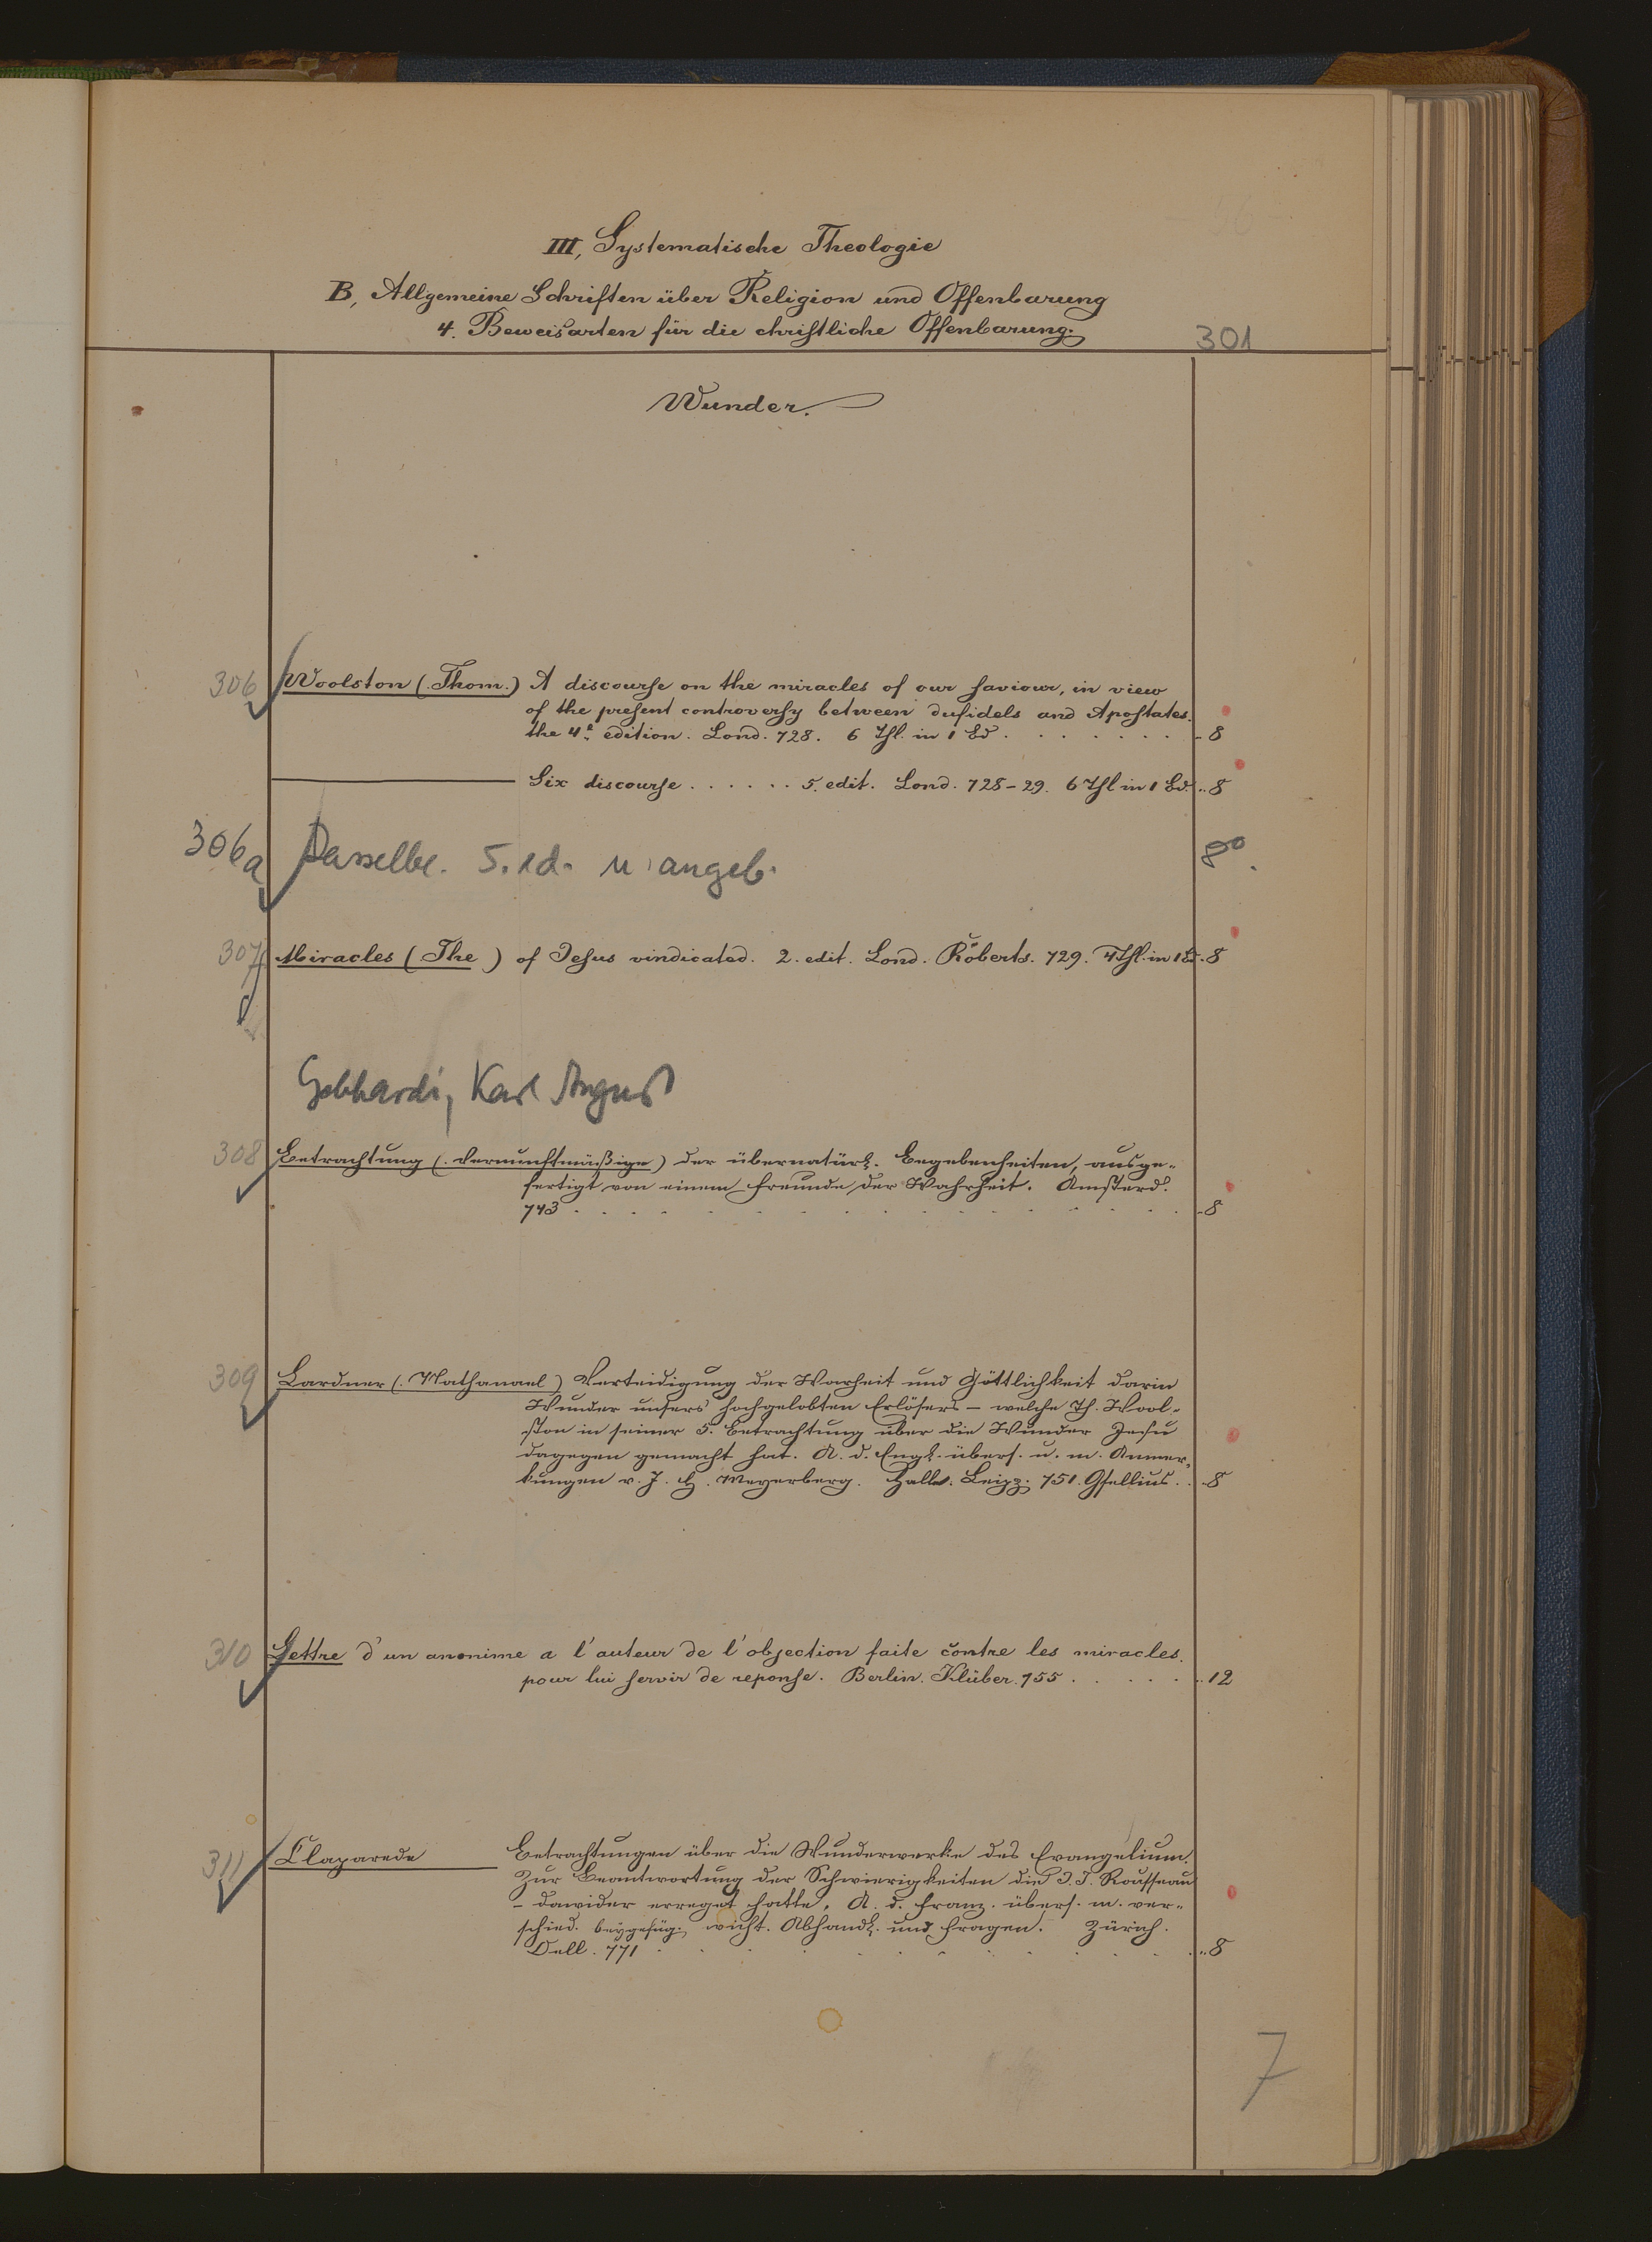 III, Systematische Theologie
B, Allgemeine Schriften über Religion und Offenbarung
4. Beweisarten für die christliche Offenbarung.
301
Wunder.
306 Woolston (Thom.) A discourse on the miracles of our saviour, in view
of the present controversy between Infidels and Apostates.
the 4e edition. Lond. 728. 6 Thl. in 1 Bd . . . . . . . 8
Six discourse . . . . . . 5. edit. Lond. 728-29. 6 Thl in 1 Bd. .. 8
306a Dasselbe. 5. ed. u angeb. 8o.
307 Miracles (The) of Jesus vindicated. 2. edit. Lond. Roberts. 729. 4 Thl. in 1 Bd. 8
Gebhardi, Karl August
308 Betrachtung (Vernunftmäßige) der übernatürl. Begebenheiten, ausge-
fertigt von einem Freunde der Wahrheit. Amsterd.
743 . . . . . . . . . . . . . 8
309 Lardner (Nathanael) Verteidigung der Warheit und Göttlichkeit darin
Wunder unsers hochgelobten Erlösers – welche Th. Wool-
ston in seiner 5. Betrachtung über die Wunder Jesu
dagegen gemacht hat. A. d. Engl. übers. u. m. Anmer-
kungen v. J. H. Meyerberg. Halle. Leipz. 751. Gsellius. . 8
310 Lettre d'un anonime a l'auteur de l'objection faite contre les miracles.
pour lui servir de reponse. Berlin. Klüber. 755 . . . . . 12
311 Claparede Betrachtungen über die Wunderwerke des Evangelium.
Zur Beantwortung der Schwierigkeiten die J. J. Rousseau
– dawider erreget hatte, A. d. Franz. übers. m. ver-
schied. beygefüg. wicht. Abhandl. und Fragen. Zürich.
Dell. 771 . . . . . . . . . . . . 8
7